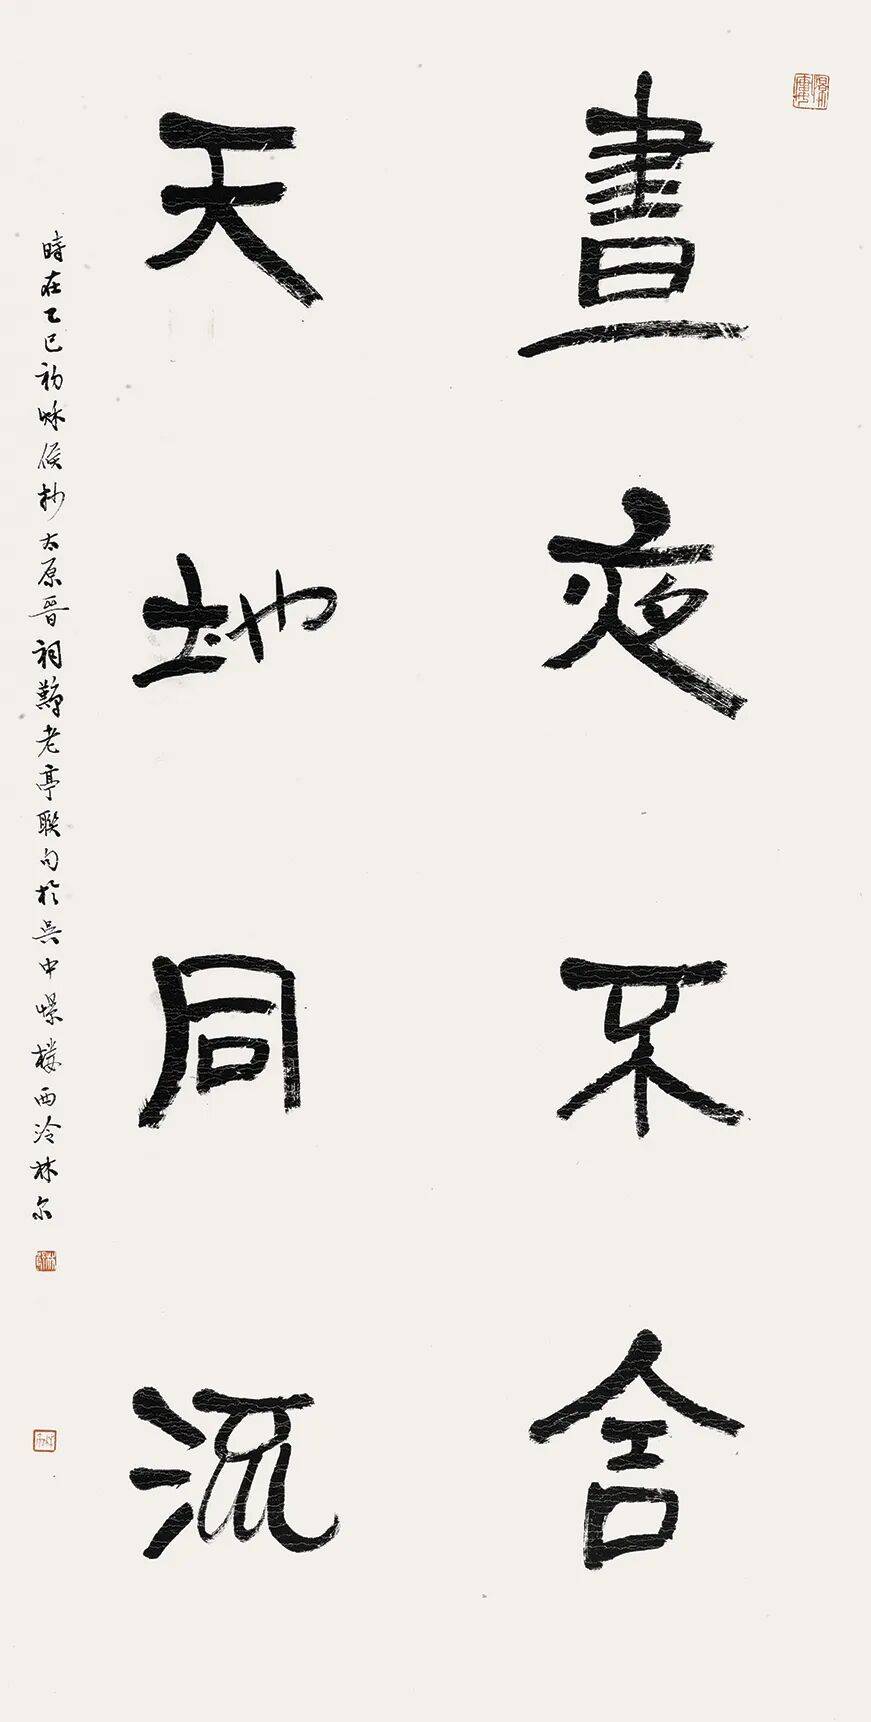 晝夜不舍
天地同流
時在乙巳初秌候抄太原晉祠難老亭聯句於吳中 樓西泠林尔